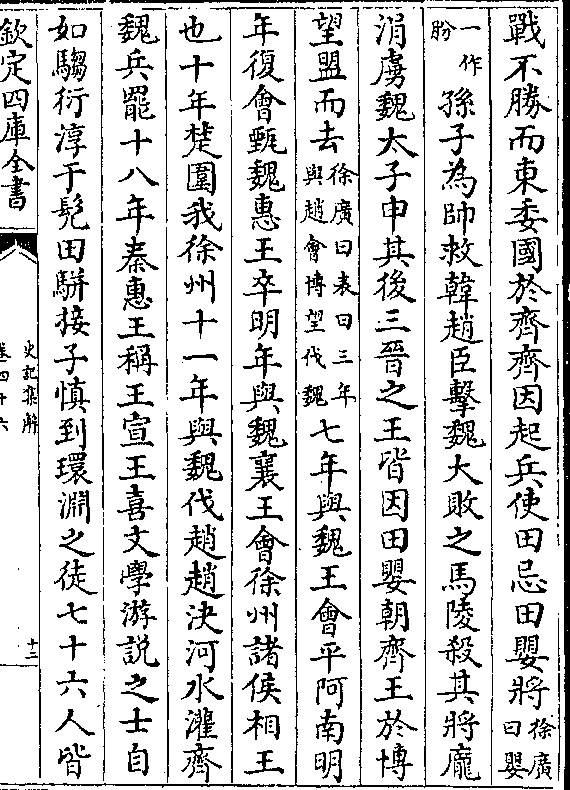 戰不勝而東委國於齊齊因起兵使田忌田嬰將徐廣曰嬰
一作肦孫子為帥救韓趙臣擊魏大敗之馬陵殺其將龐
涓虜魏太子申其後三晉之王皆因田嬰朝齊王於博
望盟而去徐廣曰表曰三年與趙會博望伐魏七年與魏王會平阿南明
年復會甄魏惠王卒明年與魏襄王會徐州諸侯相王
也十年楚圍我徐州十一年與魏伐趙趙決河水灌齊
魏兵罷十八年秦惠王稱王宣王喜文學游說之士自
如騶衍淳于髡田駢接子慎到環淵之徒七十六人皆
欽定四庫全書
史記集解
卷四十六
十二